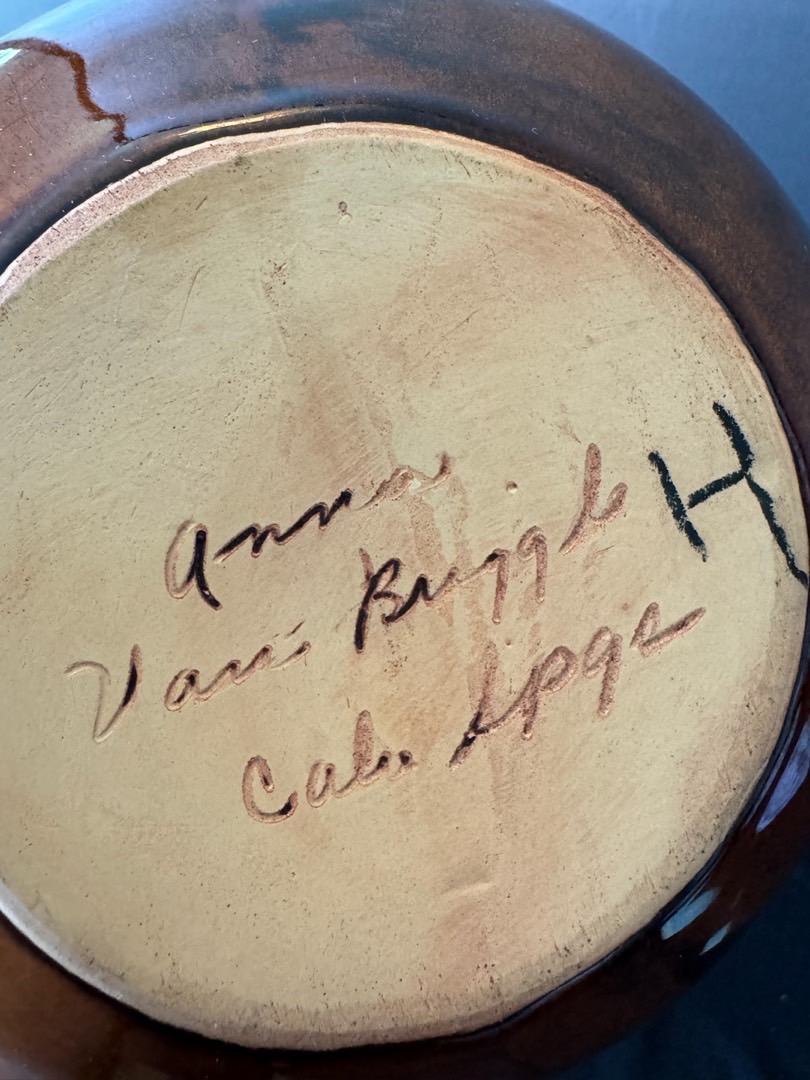 Anna
Van Briggle
Colo Spgs
H